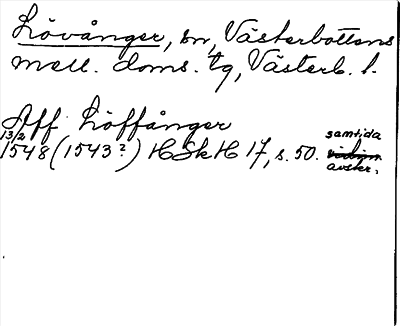 Lövånger, sn, Västerbottens
mell. doms. tg, Västerb. l.
Aff Löffånger
13/2 samtida
1548 (1543?) HSkH 17, s. 50.
avskr.